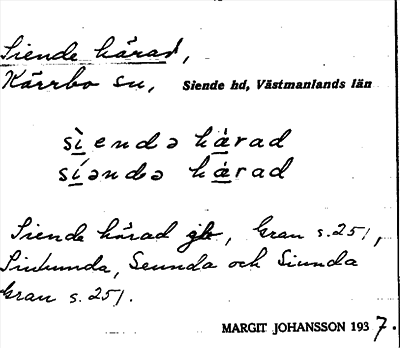 Siende härad,
Kärrbo sn, Siende hd, Västmanlands län
sì̱endə hà̱rad
sí̱əndə hà̱rad
Siende härad gb, Gran s. 251,
Siduunda, Seunda och Siunda
Gran s. 251.
MARGIT JOHANSSON 1937.